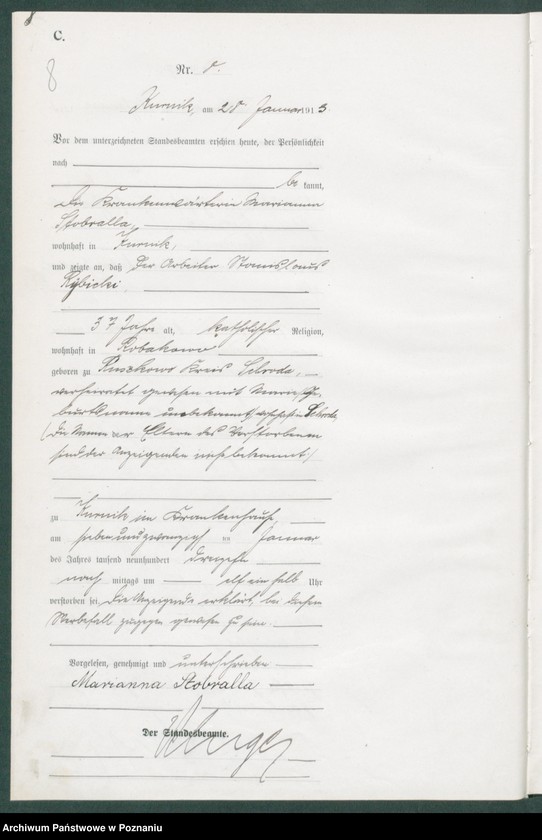 8
C.
8
Nr. 8.
Kurnik, am 28 Januar 1913.
Vor dem unterzeichneten Standesbeamten erschien heute, der Persönlichkeit
nach
be kannt,
die Krankenwärterin Marianna
Stobralla,
wohnhaft in Kurnik,
und zeigte an, daß der Arbeiter Stanislaus
Rybicki
37 Jahre alt, katholischer Religion,
wohnhaft in Robakowo
geboren zu Kreis Schroda,
verheiratet gewesen mit Ge-
burtsname unbekannt, wohnhaft in Schroda
(Die Namen der Eltern des Verstorbenen
sind der Anzeigenden nicht bekannt)
zu Kurnik im Krankenhause,
am sieben und zwanzigsten Januar
des Jahres tausend neunhundert dreizehn
nach mittags um elf ein halb Uhr
verstorben sei. Die Anzeigende erklärt, bei diesem
Sterbefall zugegen gewesen zu sein.
Vorgelesen, genehmigt und unterschrieben
Marianna Stobralla
Der Standesbeamte.
Archiwum Państwowe w Poznaniu